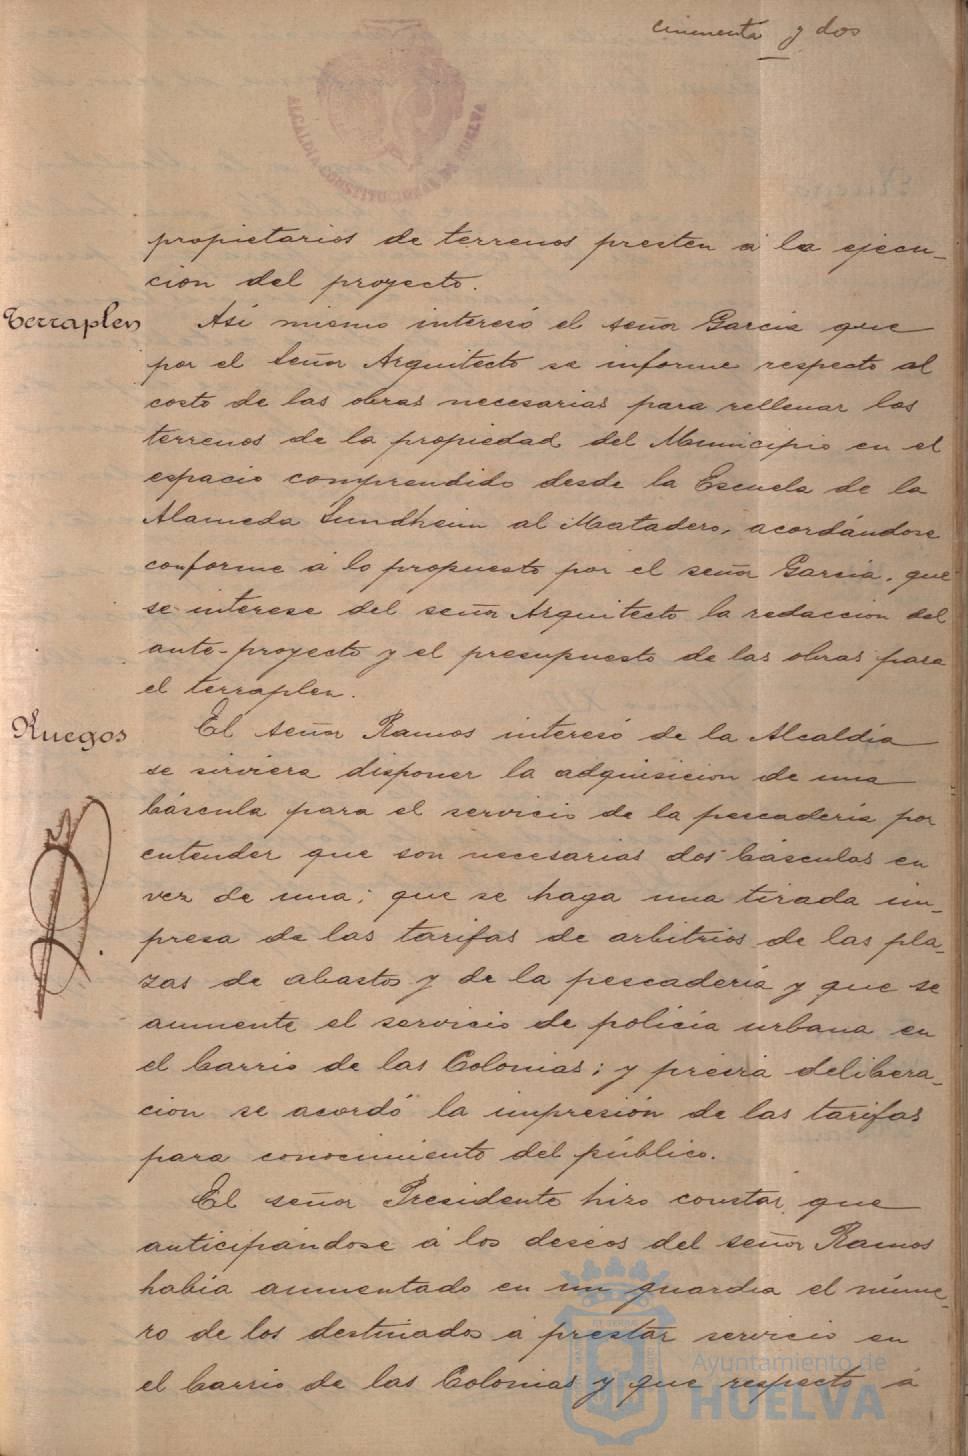 cincuenta y dos
ALCALDIA CONSTITUCIONAL DE HUELVA
propietarios de terrenos presten á la ejecu-
cion del proyecto.
Terraplen
Así mismo interesó el señor Garcia que
por el Señor Arquitecto se informe respecto al
costo de las obras necesarias para rellenar los
terrenos de la propiedad del Municipio en el
espacio comprendido desde la Escuela de la
Alameda Sundheim al Matadero, acordándose
conforme á lo propuesto por el señor Garcia, que
se interese del señor Arquitecto la redaccion del
ante-proyecto y el presupuesto de las obras para
el terraplen.
Ruegos
El señor Ramos interesó de la Alcaldía
se sirviera disponer la adquisicion de una
báscula para el servicio de la pescadería por
entender que son necesarias dos básculas en
vez de una; que se haga una tirada im-
presa de las tarifas de arbitrios de las pla-
zas de abastos y de la pescadería y que se
aumente el servicio de policía urbana en
el barrio de las Colonias; y previa delibera-
cion se acordó la impresión de las tarifas
para conocimiento del público.
El señor Presidente hizo constar que
anticipándose á los deseos del señor Ramos
había aumentado en un guardia el núme-
ro de los destinados á prestar servicio en
el barrio de las Colonias y que respecto á
Ayuntamiento de
HUELVA